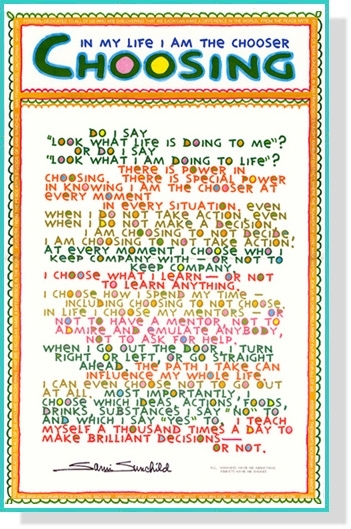 IN MY LIFE I AM THE CHOOSER
CHOOSING
DO I SAY
"LOOK WHAT LIFE IS DOING TO ME"?
OR DO I SAY
"LOOK WHAT I AM DOING TO LIFE"?
THERE IS POWER IN
CHOOSING. THERE IS SPECIAL POWER
IN KNOWING I AM THE CHOOSER AT
EVERY MOMENT
IN EVERY SITUATION, EVEN
WHEN I DO NOT TAKE ACTION, EVEN
WHEN I DO NOT MAKE A DECISION,
I AM CHOOSING TO NOT DECIDE,
I AM CHOOSING TO NOT TAKE ACTION.
AT EVERY MOMENT I CHOOSE WHO
KEEP COMPANY WITH – OR NOT TO
KEEP COMPANY.
I CHOOSE WHAT I LEARN – OR NOT
TO LEARN ANYTHING.
I CHOOSE HOW I SPEND MY TIME –
INCLUDING CHOOSING TO NOT CHOOSE.
IN LIFE I CHOOSE MY MENTORS – OR
NOT TO HAVE A MENTOR, NOT TO
ADMIRE AND EMULATE ANYBODY,
NOT TO ASK FOR HELP.
WHEN I GO OUT THE DOOR, I TURN
RIGHT OR LEFT, OR GO STRAIGHT
AHEAD. THE PATH I TAKE CAN
INFLUENCE MY WHOLE LIFE.
I CAN EVEN CHOOSE NOT TO GO OUT
AT ALL. MOST IMPORTANTLY, I
CHOOSE WHICH IDEAS, ACTIONS, FOODS,
DRINKS, SUBSTANCES I SAY "NO" TO
AND WHICH I SAY "YES" TO. I TEACH
MYSELF A THOUSAND TIMES A DAY TO
MAKE BRILLIANT DECISIONS—
OR NOT.
Sami Sunchild